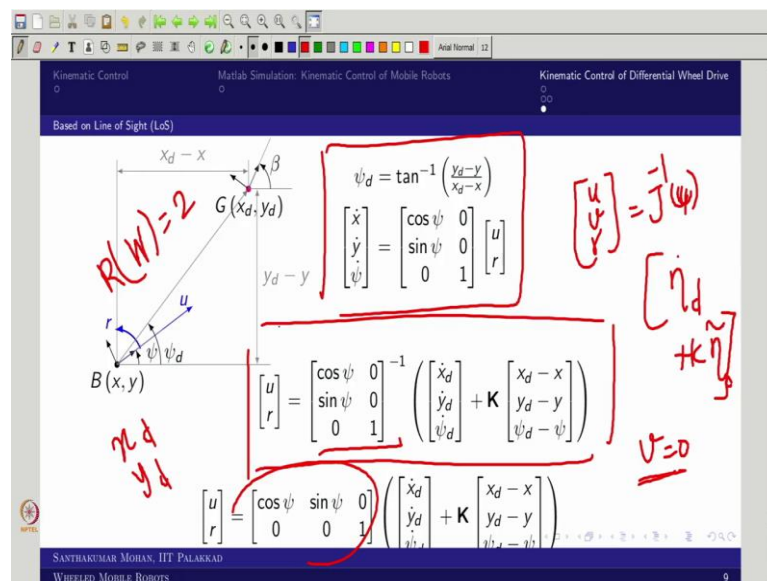 Arial Normal 12
Kinematic Control
Matlab Simulation: Kinematic Control of Mobile Robots
Kinematic Control of Differential Wheel Drive
Based on Line of Sight (LoS)
x_d − x
β
G (x_d, y_d)
R(W)=2
y_d − y
u
r
ψ ψ_d
B (x, y)
x_d
y_d
ψ_d = tan⁻¹ ((y_d−y)/(x_d−x))
[ẋ; ẏ; ψ̇] = [cos ψ 0; sin ψ 0; 0 1] [u; r]
[u; v; r] = J⁻¹(ψ)
[η̇_d + K η̃]
[u; r] = [cos ψ 0; sin ψ 0; 0 1]⁻¹ ([ẋ_d; ẏ_d; ψ̇_d] + K [x_d − x; y_d − y; ψ_d − ψ])
v=0
[u; r] = [cos ψ sin ψ 0; 0 0 1] ([ẋ_d; ẏ_d; ψ̇_d] + K [x_d − x; y_d − y; ψ_d − ψ])
NPTEL
SANTHAKUMAR MOHAN, IIT PALAKKAD
WHEELED MOBILE ROBOTS
9